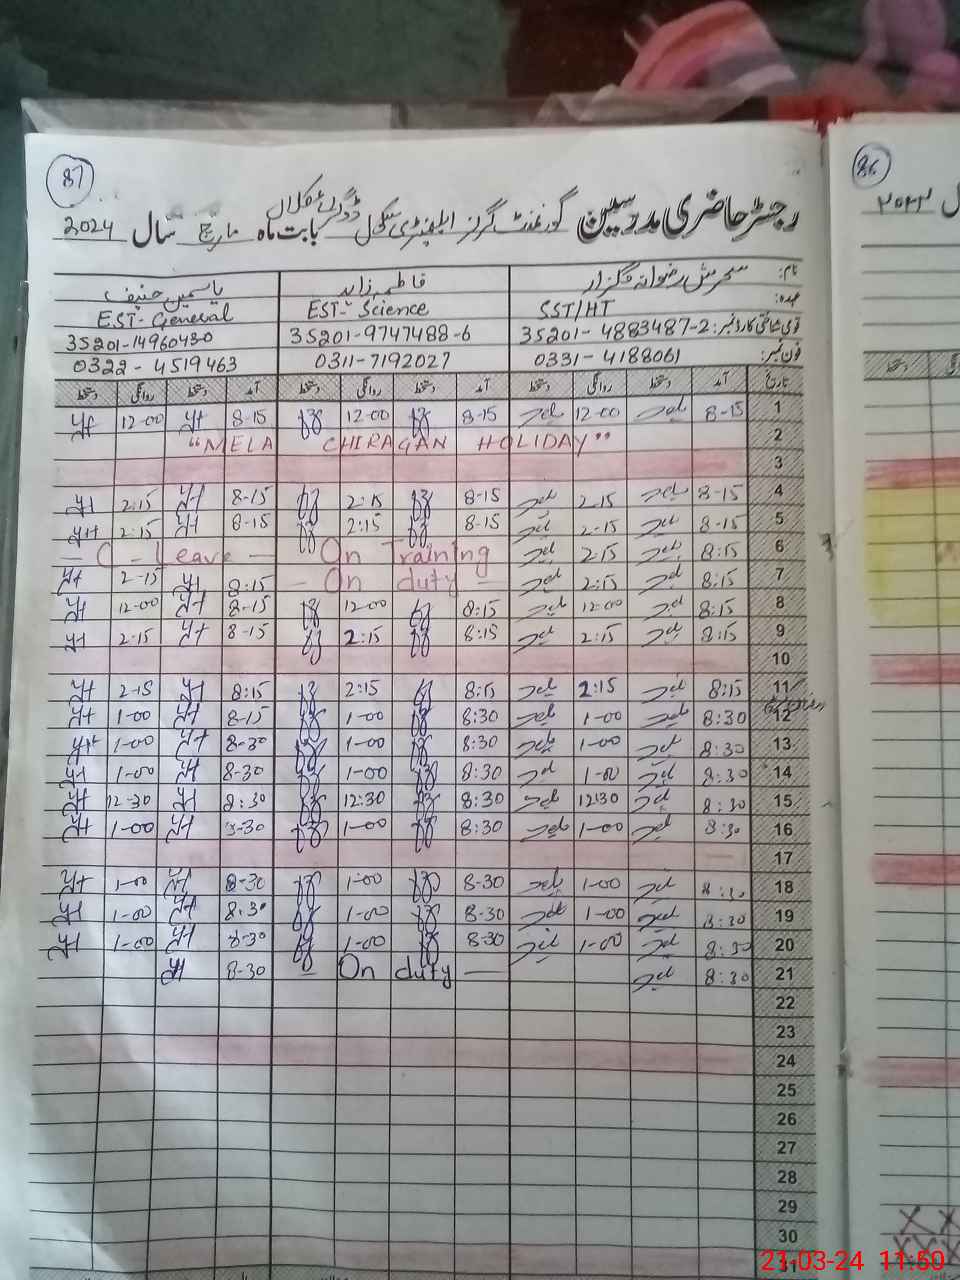 87
86
رجسٹر حاضری مدرسین گورنمنٹ گرلز ایلیمنٹری سکول ڈوگرائے کلاں بابت ماہ مارچ سال 2024
۲۰۲۳
نام: سحرش رضوانہ گلزار فاطمہ زاہد یاسمین حنیف
عہدہ: SST/HT EST- Science EST- General
قومی شناختی کارڈ نمبر: 35201- 4883487-2 35201-9747488-6 35201-14960430
فون نمبر: 0331- 4188061 0311-7192027 0322- 4519463
تاریخ آمد دستخط روانگی دستخط آمد دستخط روانگی دستخط آمد دستخط روانگی دستخط
1 8-15 12-00 8-15 12-00 8-15 12-00
2 "MELA CHIRAGAN HOLIDAY"
3
4 8-15 2-15 8-15 2:15 8-15 2:15
5 8-15 2-15 8-15 2:15 8-15 2:15
6 8:15 2:15 On Training — C - Leave —
7 8:15 2:15 — On duty — 8:15 2-15
8 8:15 12:00 8:15 12-00 8-15 12-00
9 8:15 2:15 8:15 2:15 8-15 2-15
10
11 8:15 2:15 8:15 2:15 8:15 2-15
12 8:30 1-00 8:30 1-00 8-15 1-00
13 8:30 1-00 8:30 1-00 8-30 1-00
14 8:30 1-00 8:30 1-00 8-30 1-00
15 8:30 12:30 8:30 12:30 8:30 12-30
16 8:30 1-00 8:30 1-00 8-30 1-00
17
18 8:30 1-00 8-30 1-00 8-30 1-00
19 8:30 1-00 8-30 1-00 8:30 1-00
20 8:30 1-00 8-30 1-00 8-30 1-00
21 8:30 — On duty — 8-30
22
23
24
25
26
27
28
29
30
31
21-03-24 11:50